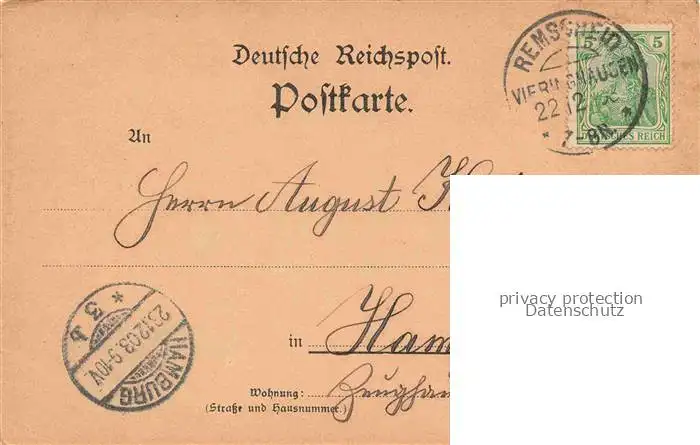 Deutsche Reichspost.
Postkarte.
REMSCHEID
VIERINGHAUSEN
22 12
* 7-8N. *
5 5
DEUTSCHES REICH
An
Herrn August
privacy protection
Datenschutz
* 3 b
23.12.03.9-10V
HAMBURG
in Ham
Wohnung:
(Straße und Hausnummer.)
Zeughau